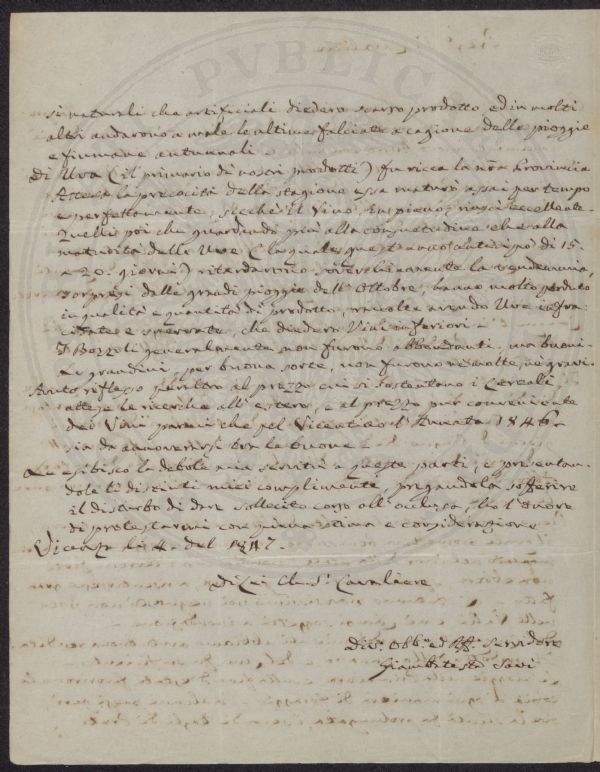 sì naturali che artificiali diedero scarso prodotto ed in molti
altri andarono a male le ultime falciate a cagione delle pioggie
e fiumane autunnali
Di Uva (il primario de' nostri prodotti) fu ricca la nra Provincia
Attesa la precocità della stagione essa maturò assai per tempo
e perfettamente, sicchè il Vino riuscì eccellente.
Quelli poi che guardando più alla consuetudine che alla
maturità delle Uve (la quale quest'anno anticipò di 15.
a 20. giorni) ritardarono soverchiamente la vendemmia,
sorpresi dalle grandi pioggie dell'Ottobre, hanno molto perduto
in qualità e quantità di prodotto, raccolte avendo Uve infra-
cidate e che diedero Vini inferiori
I Bozzoli generalmente non furono abbondanti, ma buoni.
Le grandini, per buona sorte, non furono nè molte, nè gravi.
Avuto riflesso peraltro al prezzo cui si sostentano i Cereali,
attese le ricerche all'estero, e al prezzo pur conveniente
dei Vini parmi che pel Vicentino l'Annata 1846
sia da annoverarsi tra le buone
Le esibisco la debole mia servitù a queste parti, e presentan-
dole li distinti miei complimenti, pregandola sofferire
il disturbo di dare sollecito corso all'acclusa, ho l'onore
di protestarmi con piena stima e considerazione
Vicenza li 4. del 1847.
Di Lei Cavaliere
Obb.mo ed Servidore
Giambatista